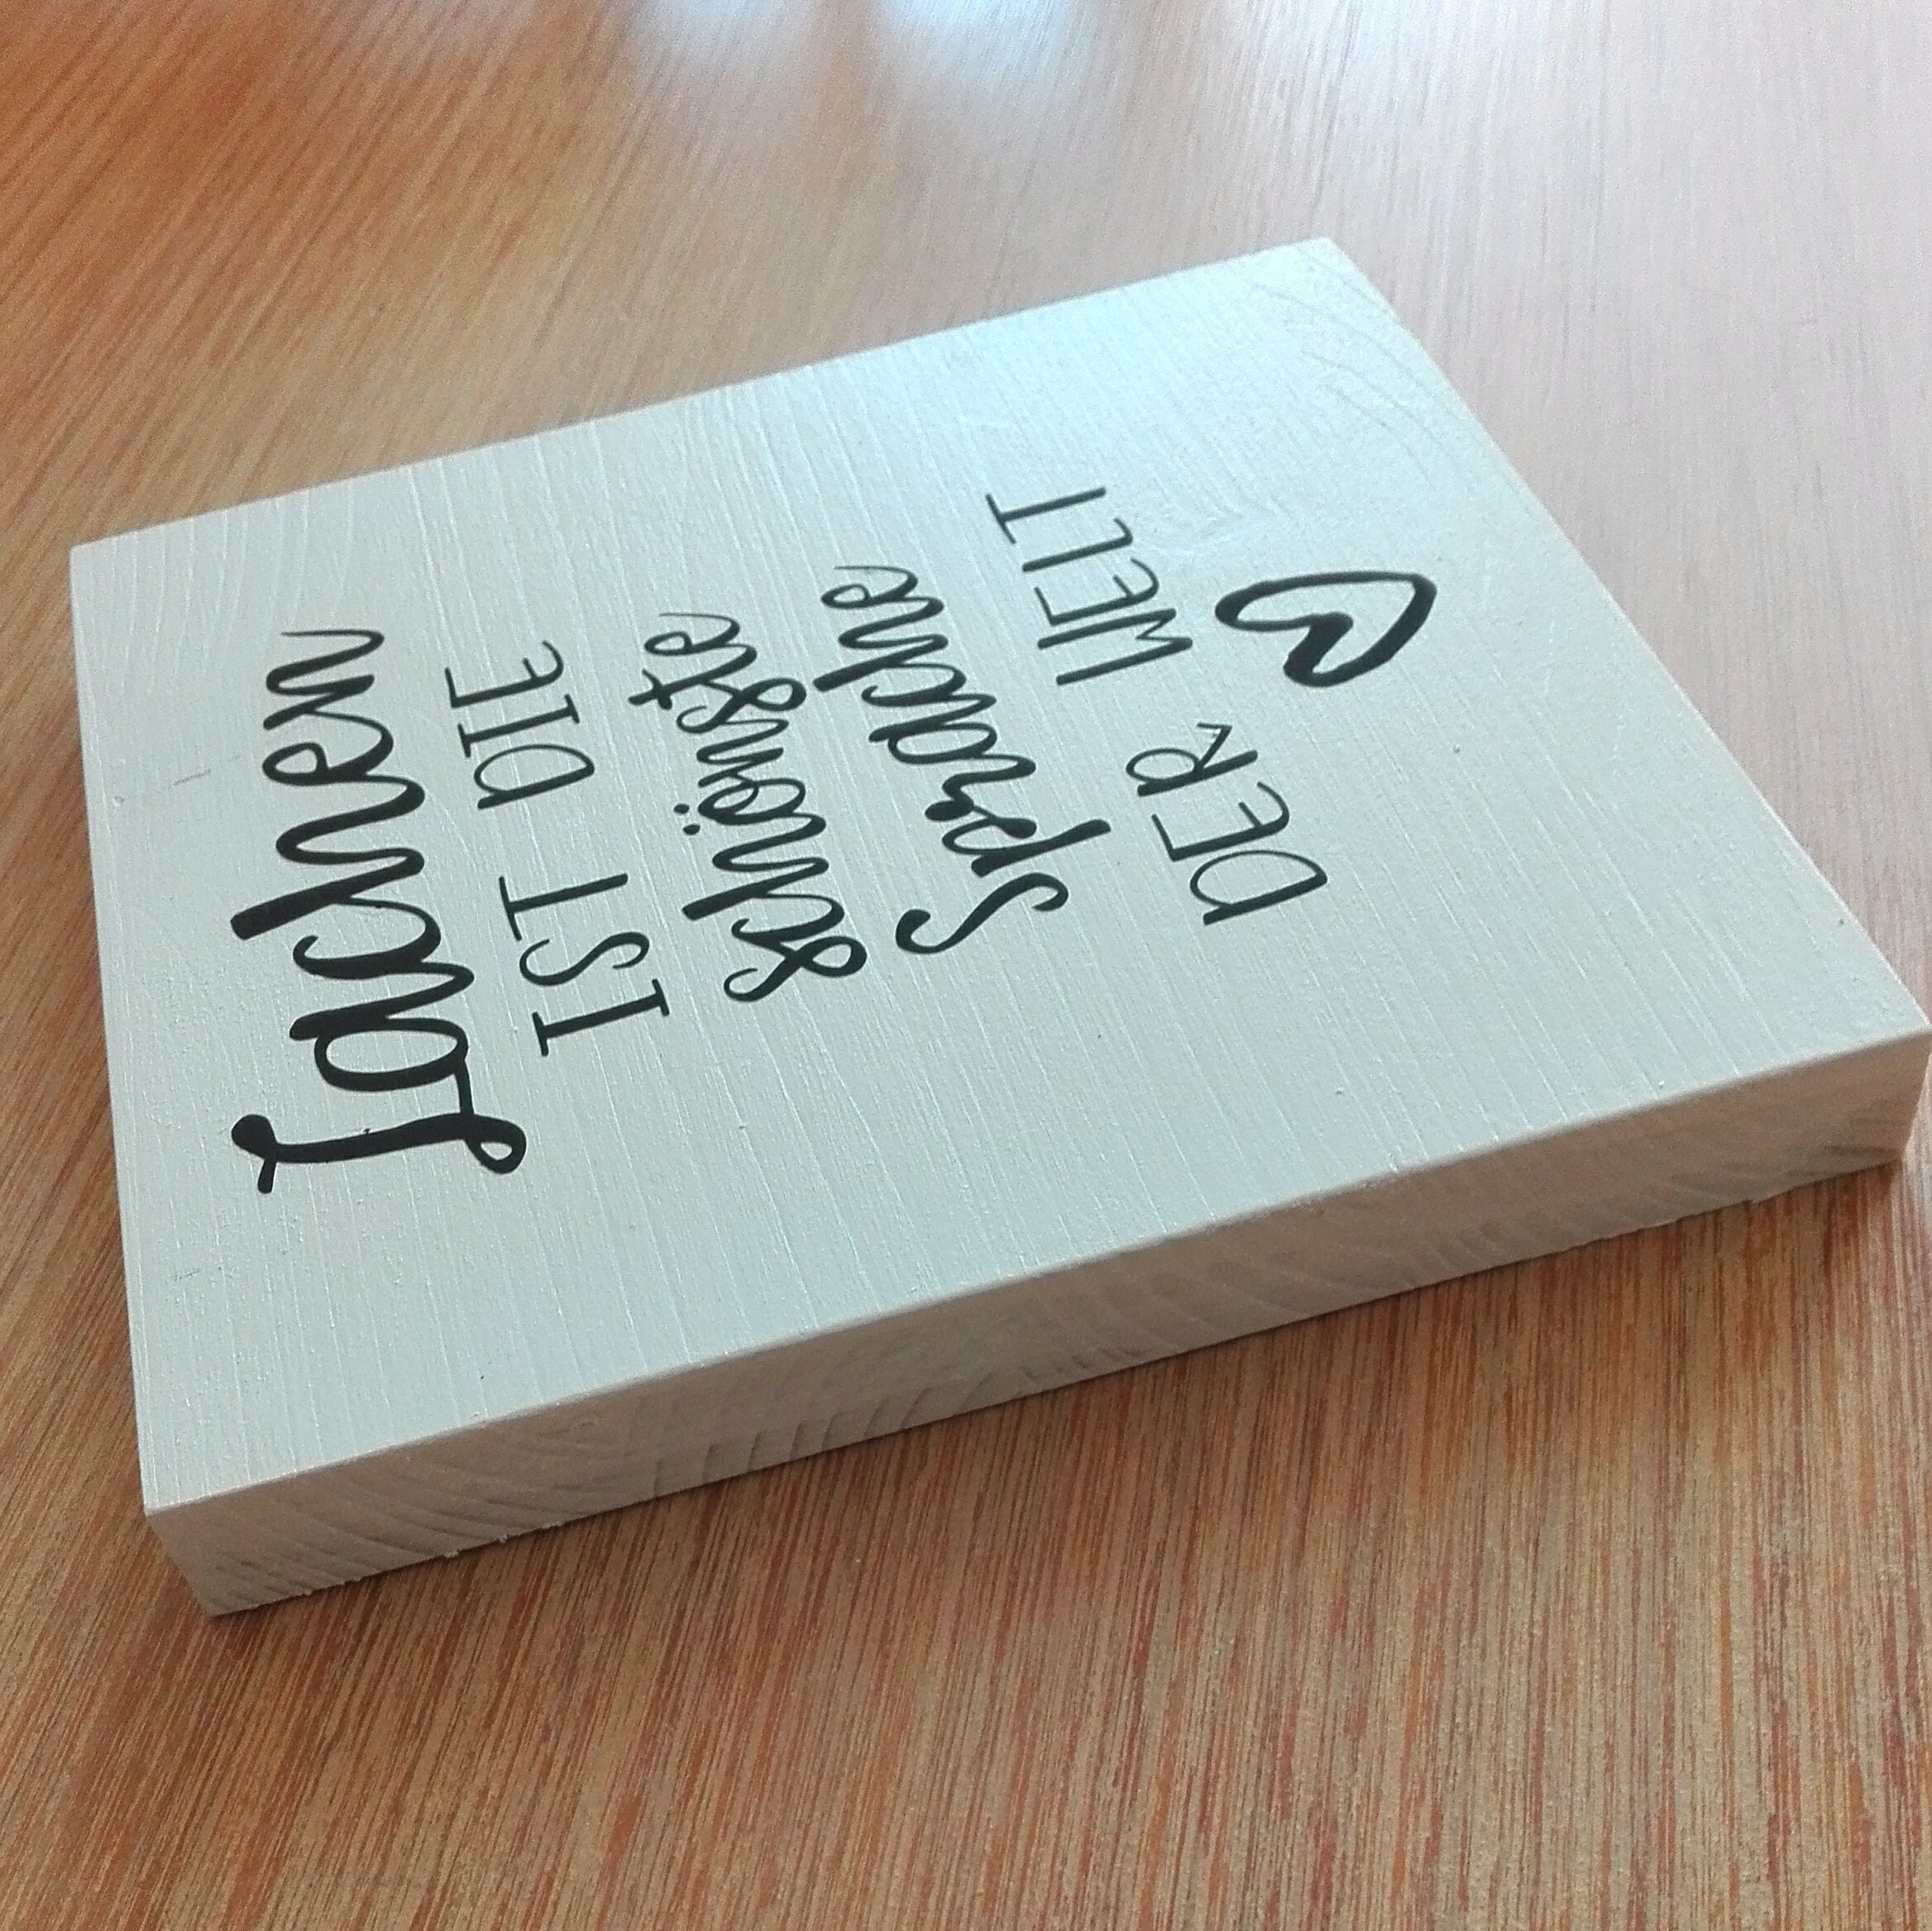 Lachen
IST DIE
schönste
Sprache
DER WELT